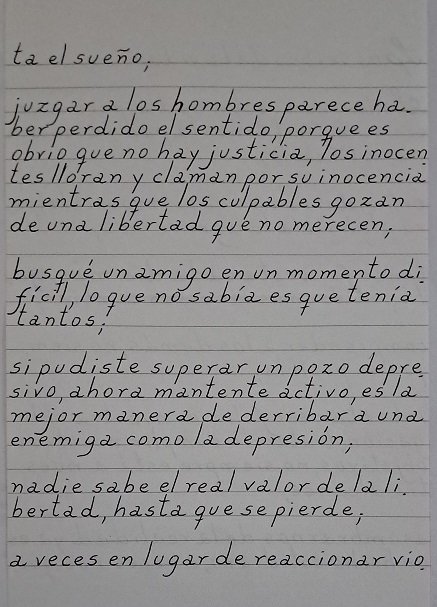 ta el sueño;
juzgar a los hombres parece ha.
ber perdido el sentido, porque es
obvio que no hay justicia, los inocen
tes lloran y claman por su inocencia
mientras que los culpables gozan
de una libertad que no merecen;
busqué un amigo en un momento di.
fícil, lo que no sabía es que tenía
tantos;
si pudiste superar un pozo depre.
sivo, ahora mantente activo, es la
mejor manera de derribar a una
enemiga como la depresión;
nadie sabe el real valor de la li.
bertad, hasta que se pierde;
a veces en lugar de reaccionar vio.